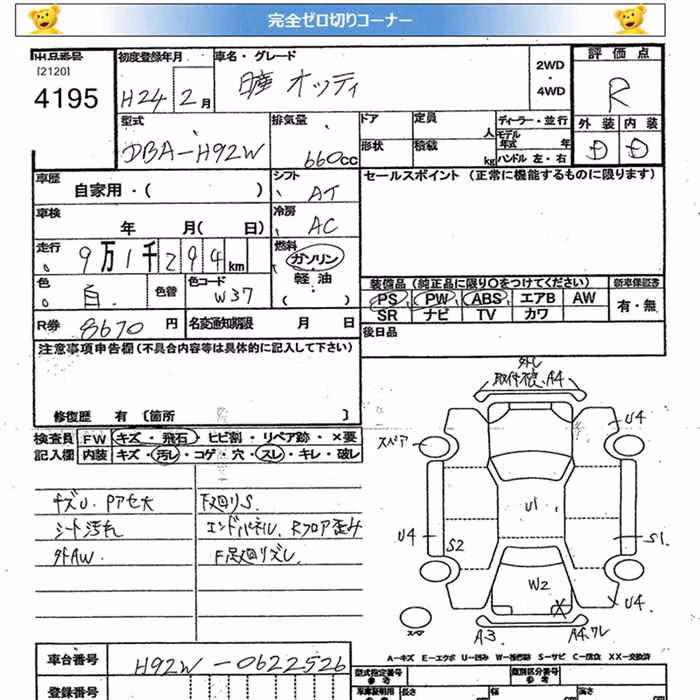 完全ゼロ切りコーナー
出品番号
[2120]
4195
初度登録年月
H24 2月
車名・グレード
日産 オッティ
2WD
・
4WD
評価点
R
外装 内装
D D
型式
DBA-H92W
排気量
660cc
ドア 定員 人
形状 積載 kg
ディーラー・並行
モデル年式 年
ハンドル 左・右
車歴
自家用・( )
シフト
AT
セールスポイント (正常に機能するものに限ります)
車検
年 月( 日)
冷房
AC
走行
9万1千294km
燃料
ガソリン
軽油
( )
色
白
色替
色コード
W37
装備品 (純正品に限り○をつけてください)
PS PW ABS エアB AW
SR ナビ TV カワ
新車保証書
有・無
R券 8670円
名変通知期限 月 日
後日品
注意事項申告欄(不具合内容等は具体的に記入して下さい)
修復歴 有 〔箇所 〕
検査員
記入欄
FW キズ・飛石・ヒビ割・リペア跡・×要
内装 キズ・汚レ・コゲ・穴・スレ・キレ・破レ
キズU、Pアセ大
シート汚れ
外AW
下廻りS
エンドパネル、Rフロア歪み
F足廻りズレ
外し
取付不良、A4
スペア
U4
U1
U4
S2
S1
W2
X
U4
スペア
A3
A4.ワレ
A-キズ E-エクボ U-凹み W-補修跡 S-サビ C-腐食 XX-交換済
車台番号
H92W-0622526
登録番号
型式指定番号
参考
類別区分番号
参考
長さ
幅
高さ